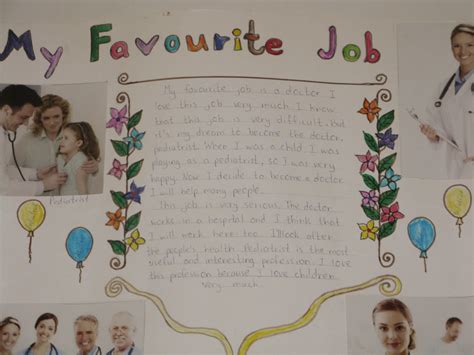 My Favourite Job
My favourite job is a doctor I
love this job very much I knew
that this job is very difficult, but
it's my dream to become the doctor,
pediatrist. When I was a child I was
playing as a pediatrist, so I was very
happy. Now I decide to become a doctor
I will help many people.
This job is very serious. The doctor
works in a hospital and I think that
I will work here too. I look after
the people's health. Pediatrist is the most
useful and interesting profession. I love
this profession because I love children
very much.
Pediatrist